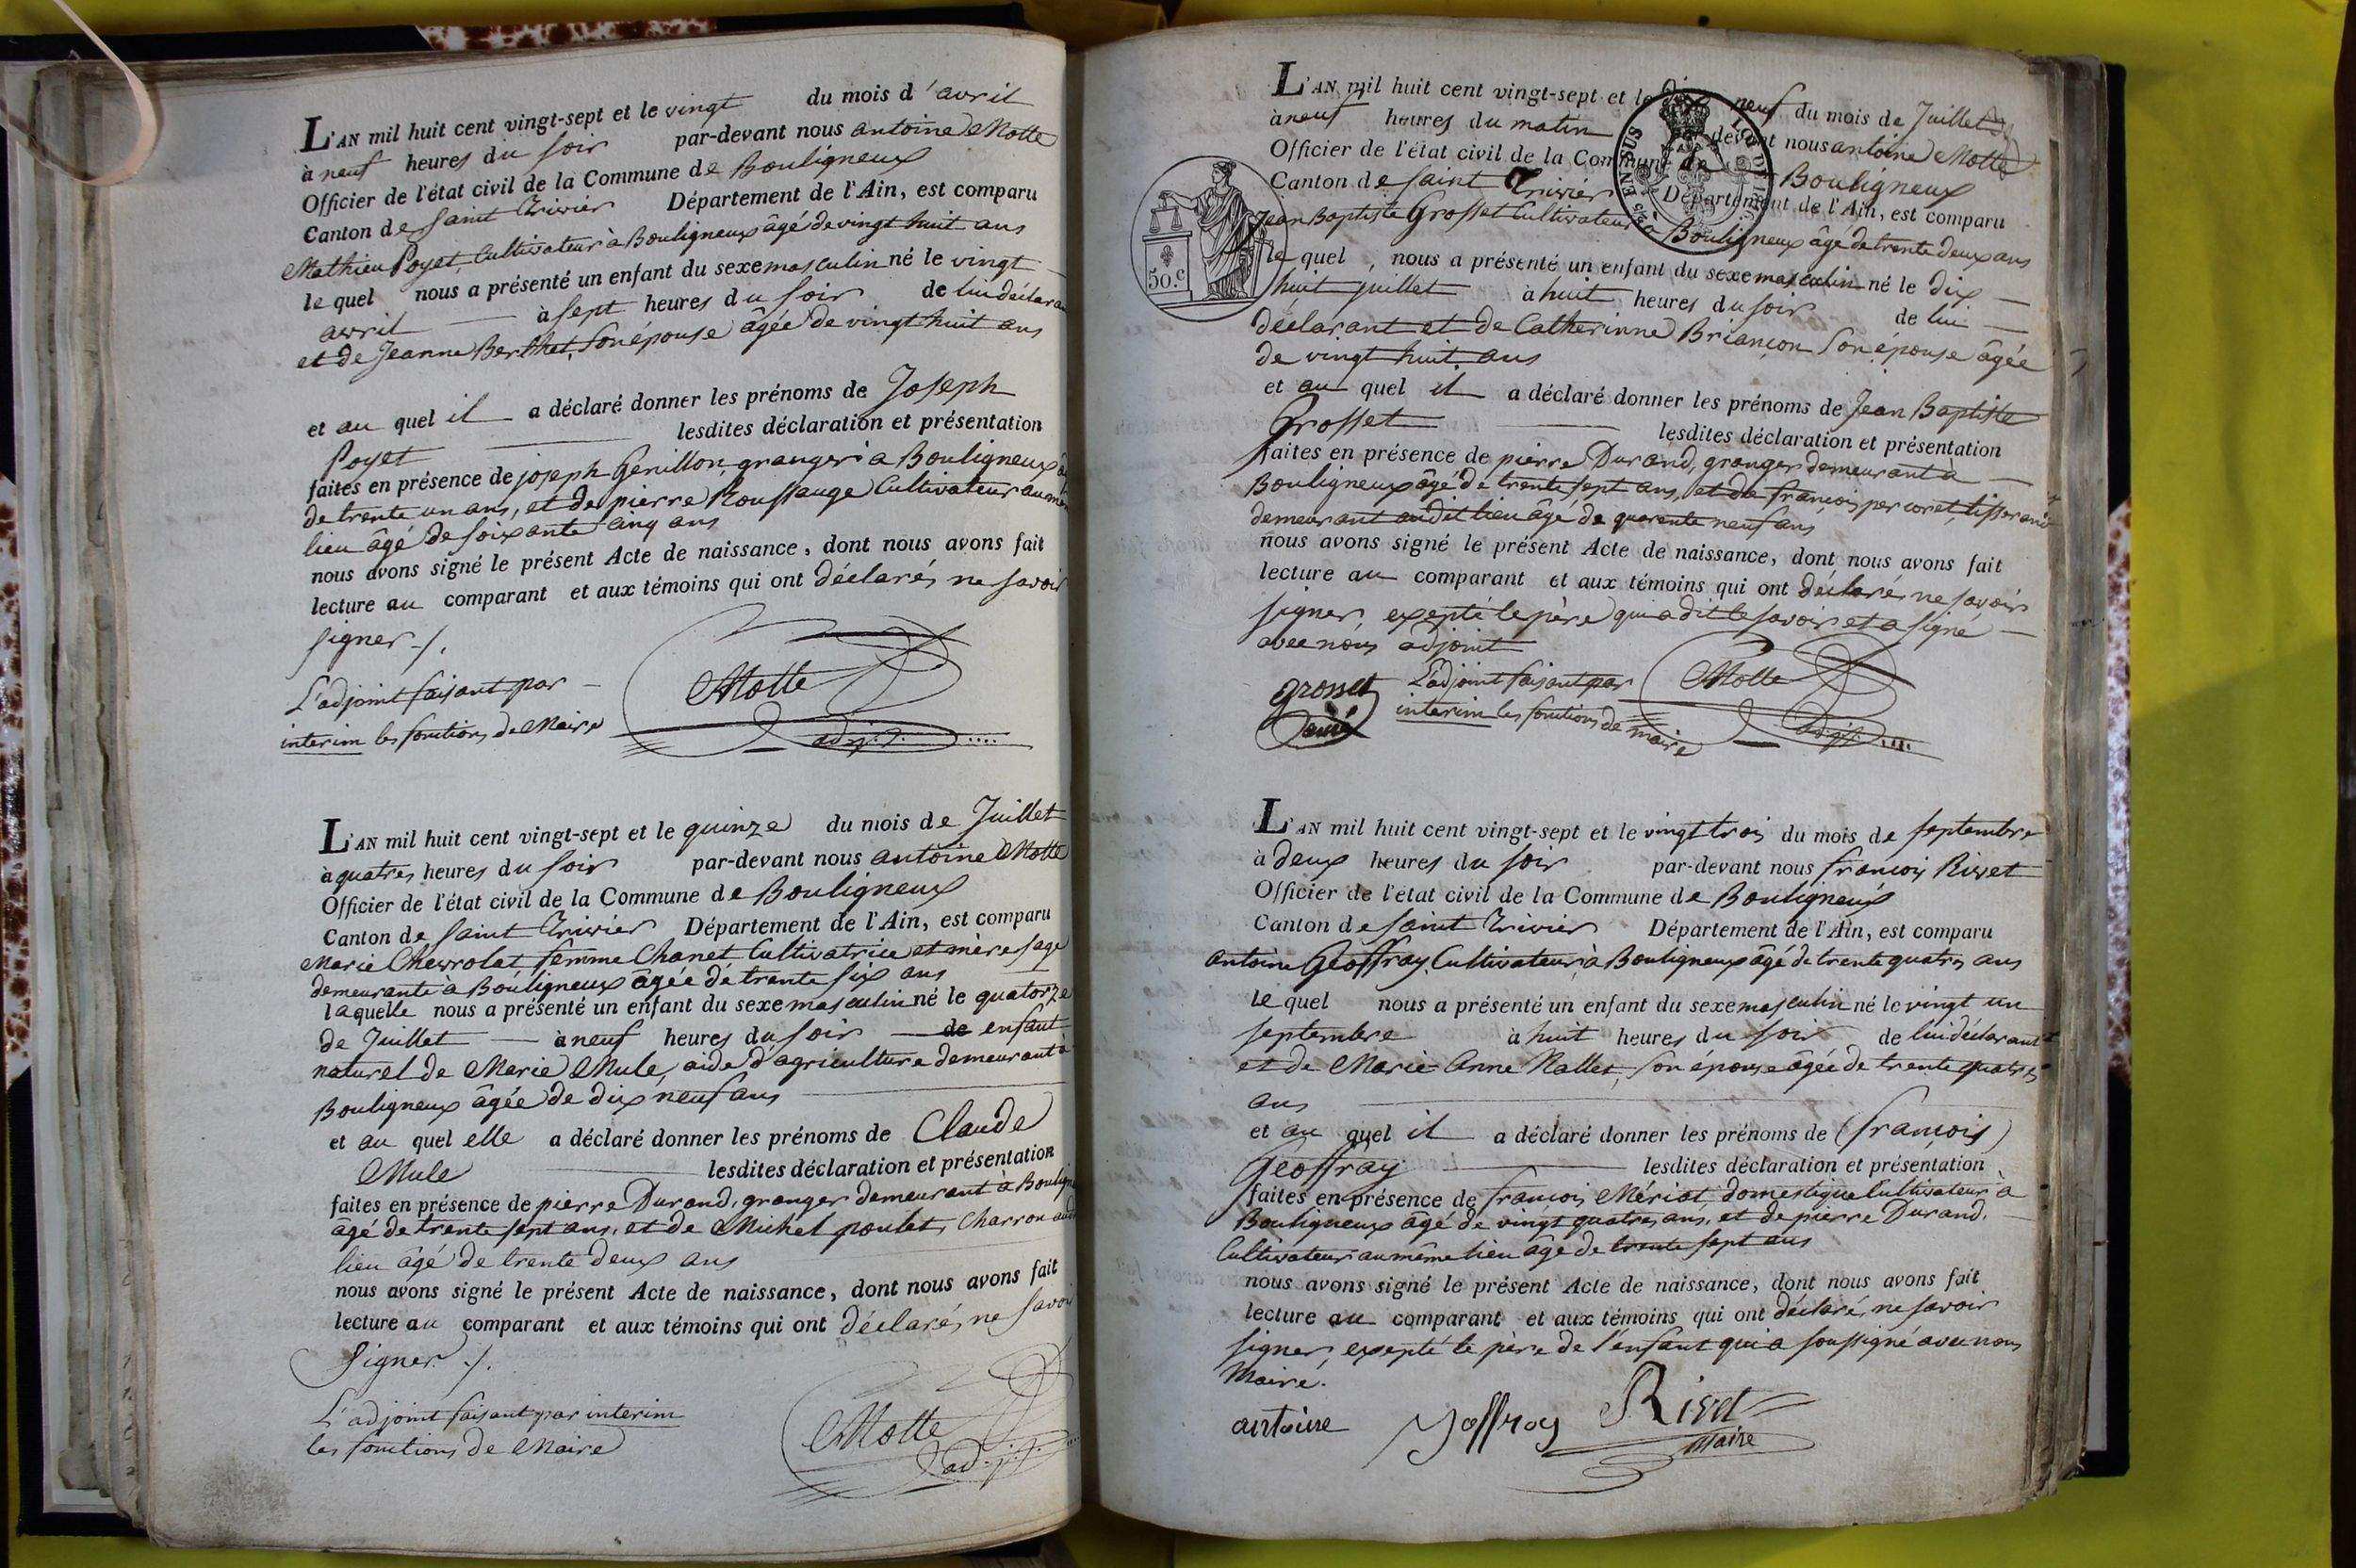 L'AN mil huit cent vingt-sept et le vingt du mois d'avril
à neuf heures du soir par-devant nous antoine Motte
Officier de l'état civil de la Commune de Bouligneux
Canton de Saint Trivier Département de l'Ain, est comparu
Mathieu Poyet, Cultivateur à Bouligneux âgé de vingt huit ans
le quel nous a présenté un enfant du sexe masculin né le vingt
avril à sept heures du soir de lui déclarant
et de Jeanne Berthet, son épouse âgée de vingt huit ans
et au quel il a déclaré donner les prénoms de Joseph
Poyet lesdites déclaration et présentation
faites en présence de joseph Genillon, granger à Bouligneux
de trente un ans, et de pierre Roussauge Cultivateur au même
lieu âgé de soixante cinq ans
nous avons signé le présent Acte de naissance, dont nous avons fait
lecture au comparant et aux témoins qui ont déclarés ne savoir
signer ./.
L'adjoint faisant par
interim les fonctions de Maire
Motte
adj.t
L'AN mil huit cent vingt-sept et le quinze du mois de Juillet
à quatres heures du soir par-devant nous antoine Motte
Officier de l'état civil de la Commune de Bouligneux
Canton de Saint Trivier Département de l'Ain, est comparu
Marie Chevrolat, femme Chanet Cultivatrice et mère sage
demeurante à Bouligneux âgée de trente six ans
laquelle nous a présenté un enfant du sexe masculin né le quatorze
de Juillet à neuf heures du soir de enfant
naturel de Marie Mule, aide d'agriculture demeurant à
Bouligneux âgée de dix neuf ans
et au quel elle a déclaré donner les prénoms de Claude
Mule lesdites déclaration et présentation
faites en présence de pierre Durand, granger demeurant à Bouligneux
agé de trente sept ans, et de Michel poulet, Charron audit
lieu âgé de trente deux ans
nous avons signé le présent Acte de naissance, dont nous avons fait
lecture au comparant et aux témoins qui ont déclarés ne savoir
signer ./.
L'adjoint faisant par interim
les fonctions de Maire
Motte
adj.t
L'AN mil huit cent vingt-sept et le dix neuf du mois de Juillet
à neuf heures du matin par-devant nous antoine Motte
Officier de l'état civil de la Commune de Bouligneux
Canton de saint Trivier Département de l'Ain, est comparu
Jean Baptiste Grosset Cultivateur à Bouligneux âgé de trente deux ans
le quel, nous a présenté un enfant du sexe masculin né le dix
huit juillet à huit heures du soir de lui
déclarant et de Catherinne Briançon son épouse âgée
de vingt huit ans
et au quel il a déclaré donner les prénoms de Jean Baptiste
Grosset lesdites déclaration et présentation
faites en présence de pierre Durand, granger demeurant à
Bouligneux âgé de trente sept ans, et de françois percoret, tisserand
demeurant audit lieu âgé de quarente neuf ans
nous avons signé le présent Acte de naissance, dont nous avons fait
lecture au comparant et aux témoins qui ont déclarés ne savoir
signer, expepté le père qui a dit le savoir et a signé
avec nous adjoint
grosset
L'adjoint faisant par
interim les fonctions de maire
Motte
adj.t
50.c
L'AN mil huit cent vingt-sept et le vingt trois du mois de septembre
à deux heures du soir par-devant nous françois Rivet
Officier de l'état civil de la Commune de Bouligneux
Canton de Saint Trivier Département de l'Ain, est comparu
Antoine Géoffray, Cultivateur à Bouligneux âgé de trente quatres ans
le quel nous a présenté un enfant du sexe masculin né le vingt un
septembre à huit heures du soir de lui déclarant
et de Marie Anne Nallet, son épouse âgée de trente quatres
ans
et au quel il a déclaré donner les prénoms de (françois)
Géoffray lesdites déclaration et présentation
faites en présence de françois Mériat domestique Cultivateur à
Bouligneux âgé de vingt quatres ans, et de pierre Durand,
Cultivateur au même lieu âgé de trente sept ans
nous avons signé le présent Acte de naissance, dont nous avons fait
lecture au comparant et aux témoins qui ont déclaré, ne savoir
signer, expepté le père de l'enfant qui a soussigné avec nous
Maire.
antoine Joffroy Rivet
Maire